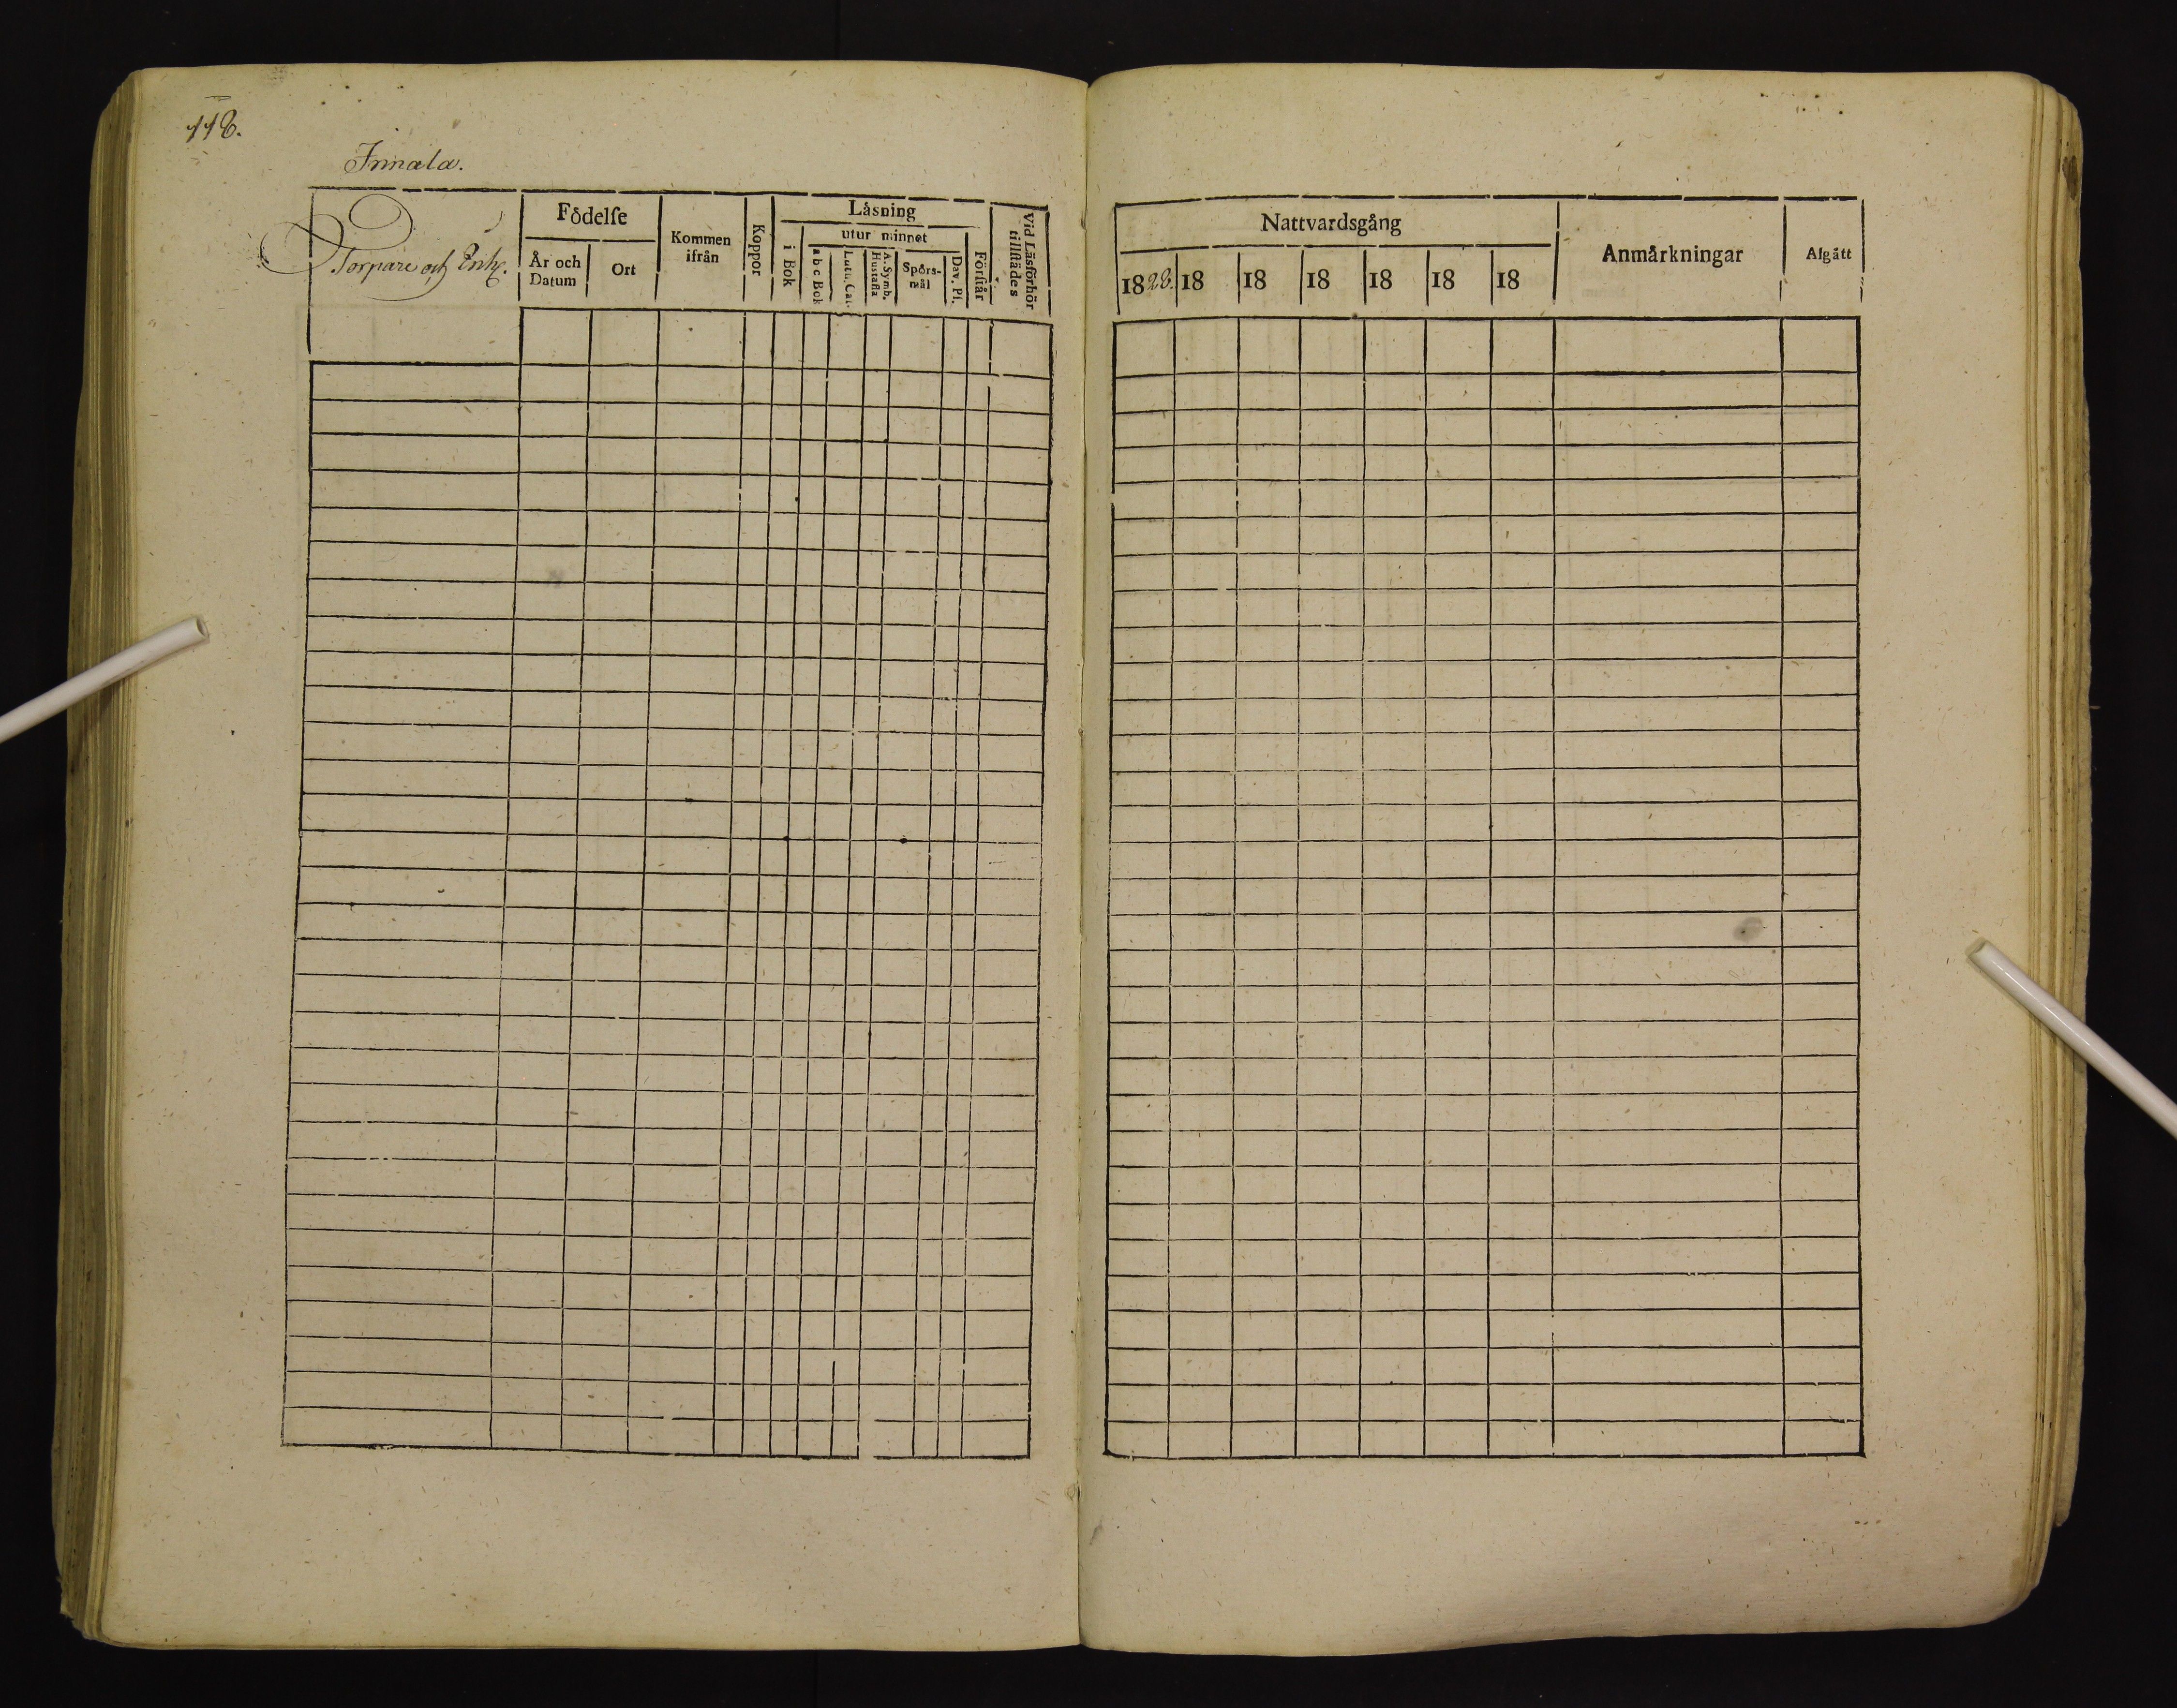 118.
Innala.
Torpare och Enk.
Födelse
År och Datum
Ort
Kommen ifrån
Koppor
Läsning
i Bok
utur minnet
a b c Bok
Luth. Cat.
A. Symb. Hustafla
Spörs-mål
Dav. Ps.
Förstår
Vid Läsförhör tillstädes
Nattvardsgång
1828.
18
18
18
18
18
18
Anmärkningar
Afgått